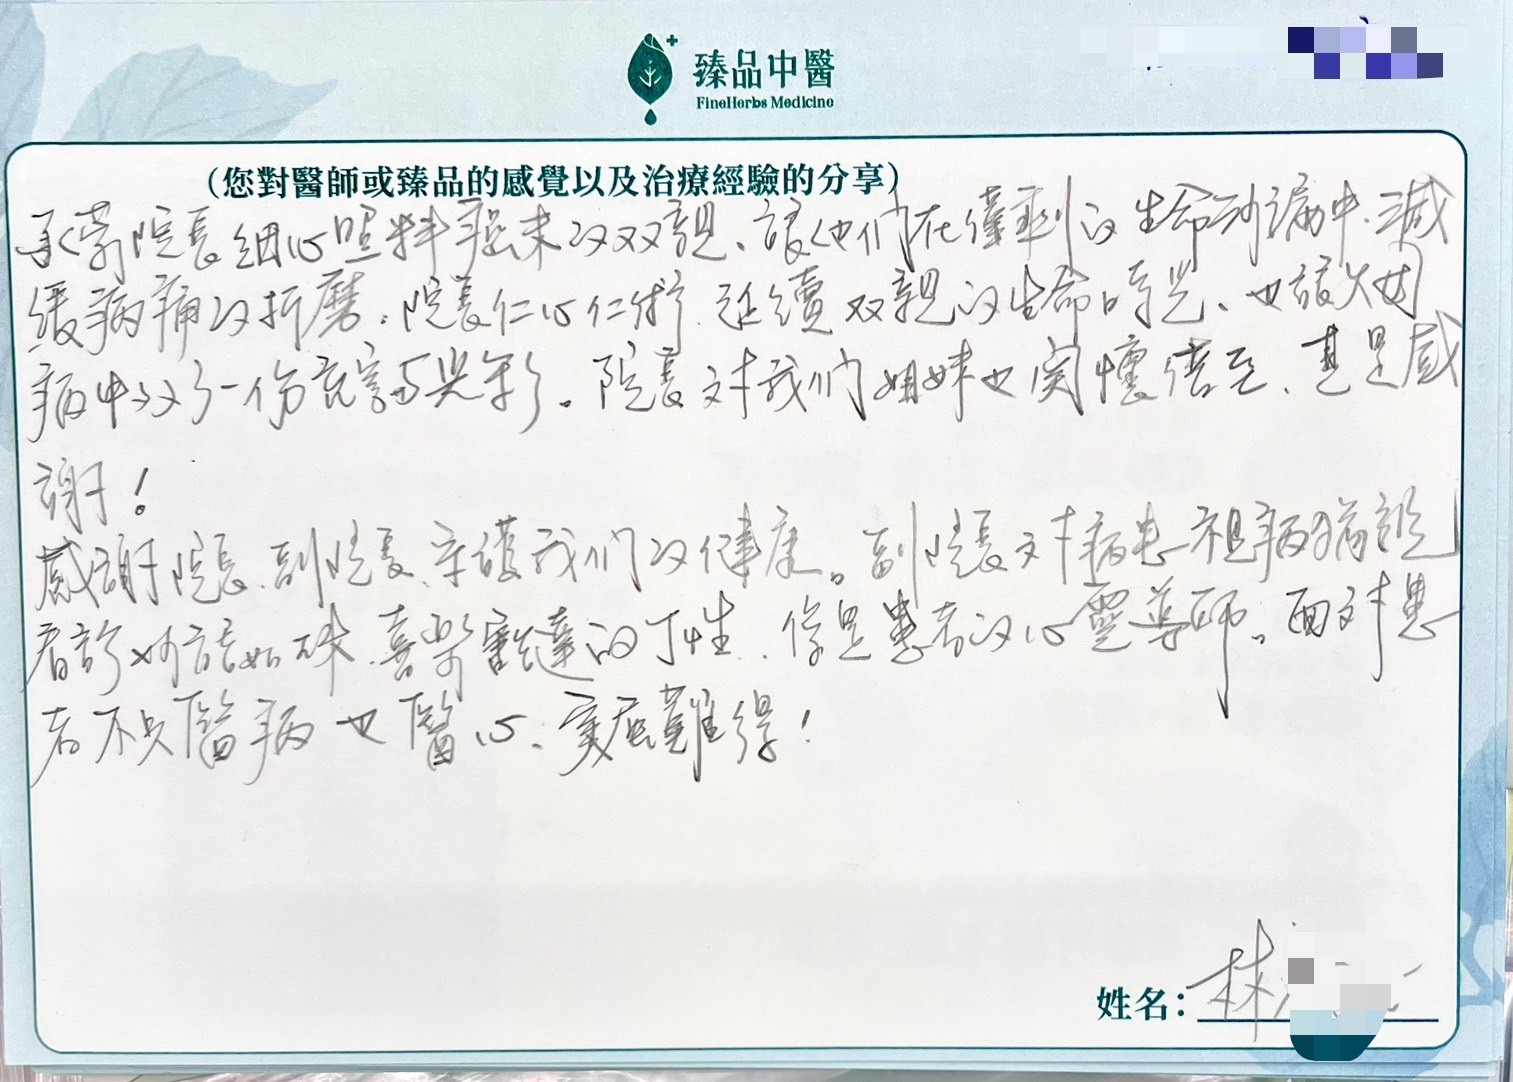 臻品中醫
FineHerbs Medicine
(您對醫師或臻品的感覺以及治療經驗的分享)
承蒙院長細心照料癌末的双親、讓他们在僅剩的生命沙漏中、減
緩病痛的折磨。院長仁心仁術、延續双親的生命時光、也讓
病中多了一份。院長对我们姐妹也関懷倍至、甚是感
謝!
感謝院長、副院長、守護我们的健康。副院長对病患視病
看診妙語如珠、喜樂豁達的个性、像是患者的心靈導師。面对患
者不只醫病也醫心、實屬難得!
姓名:林